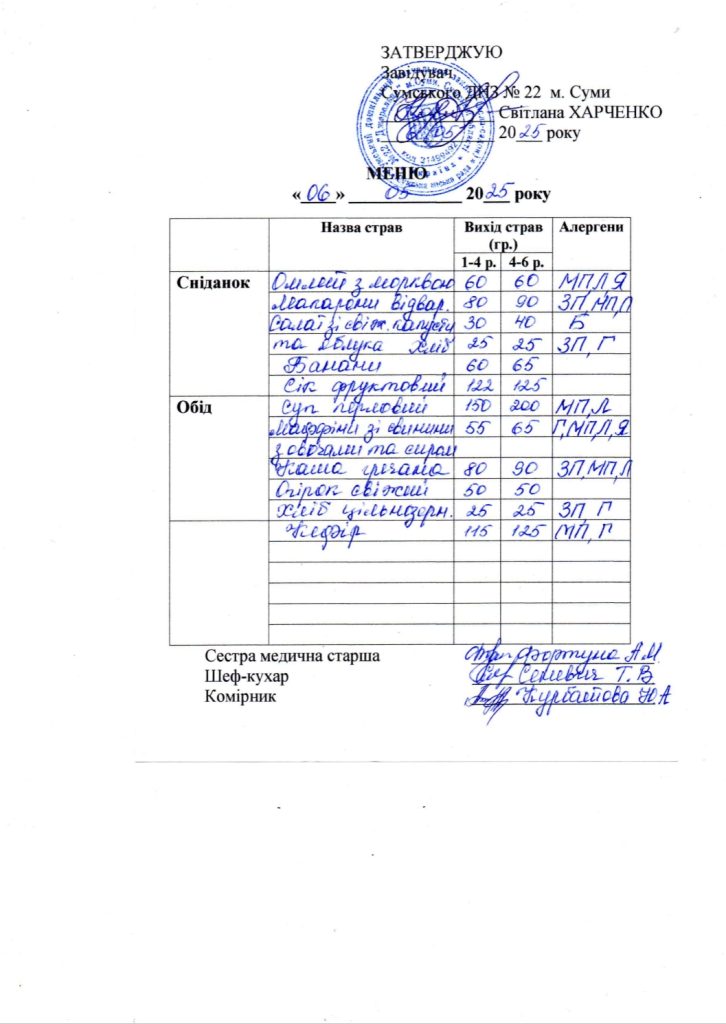 ЗАТВЕРДЖУЮ
Завідувач
Сумського ДНЗ № 22 м. Суми
Світлана ХАРЧЕНКО
2025 року
МЕНЮ
«06» 05 2025 року
Назва страв Вихід страв (гр.) Алергени
1-4 р. 4-6 р.
Сніданок Омлет з морквою 60 60 МП,Л,Я
Макарони відвар. 80 90 ЗП,МП,Л
Салат зі свіж. капусти 30 40 Б
та яблука Хліб 25 25 ЗП, Г
Банани 60 65
Сік фруктовий 122 125
Обід Суп перловий 150 200 МП,Л
Маффіни зі свинини 55 65 Г,МП,Л,Я
з овочами та сиром
Каша гречана 80 90 ЗП,МП,Л
Огірок свіжий 50 50
Хліб цільнозерн. 25 25 ЗП, Г
Кефір 115 125 МП, Г
Сестра медична старша Фортуна А.М.
Шеф-кухар Т. В.
Комірник Курбатова Ю.А